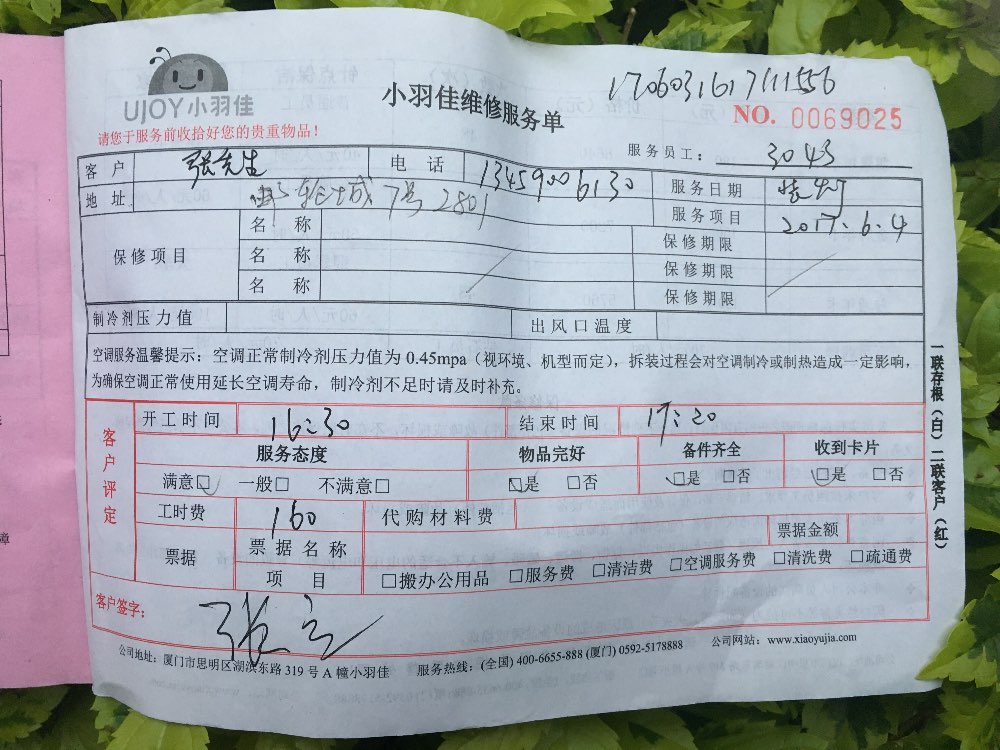 UJOY小羽佳
请您于服务前收拾好您的贵重物品！
小羽佳维修服务单
1706031617111556
NO. 0069025
服务员工： 3043
客户 张先生 电话 13459006130 服务日期
地址 城7号2801 服务项目 2017.6.4
保修项目 名称 保修期限
名称 保修期限
名称 保修期限
制冷剂压力值 出风口温度
空调服务温馨提示：空调正常制冷剂压力值为0.45mpa（视环境、机型而定），拆装过程会对空调制冷或制热造成一定影响，
为确保空调正常使用延长空调寿命，制冷剂不足时请及时补充。
客户评定
开工时间 16:30 结束时间 17:20
服务态度 物品完好 备件齐全 收到卡片
满意□ 一般□ 不满意□ □是 □否 □是 □否 □是 □否
工时费 160 代购材料费
票据 票据名称 票据金额
项目 □搬办公用品 □服务费 □清洁费 □空调服务费 □清洗费 □疏通费
客户签字：
公司地址：厦门市思明区湖滨东路319号A幢小羽佳 服务热线：(全国) 400-6655-888 (厦门) 0592-5178888 公司网站：www.xiaoyujia.com
一联存根（白）二联客户（红）
障